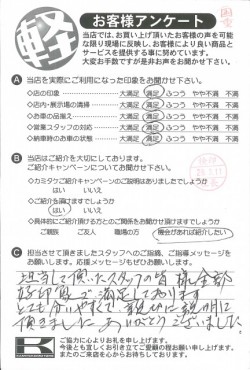 軽
お客様アンケート
当店では、お買い上げ頂いたお客様の声を可能
な限り現場に反映し、お客様により良い商品と
サービスを提供する事に努めています。
大変お手数ですが是非お声をお聞かせ下さい。
A 当店を実際にご利用になった印象をお聞かせ下さい。
◇店の印象 大満足 満足 ふつう やや不満 不満
◇店内・展示場の清掃 大満足 満足 ふつう やや不満 不満
◇お車の品揃え 大満足 満足 ふつう やや不満 不満
◇営業スタッフの対応 大満足 満足 ふつう やや不満 不満
◇納車時のお車の状態 大満足 満足 ふつう やや不満 不満
B 当店はご紹介を大切にしております。
ご紹介キャンペーンについてお聞かせ下さい。
◇カミタケご紹介キャンペーンのご説明はありましたでしょうか
はい いいえ
◇ご紹介を頂けますでしょうか
はい いいえ
◇具体的にご紹介頂ける方とのご関係をお聞かせ頂けますでしょうか
ご親族 ご友人 職場の方 機会があれば紹介したい
C 担当させて頂きましたスタッフへのご指摘、ご指導メッセージを
お願いします。応援メッセージもぜひお願いします。
担当して頂いたスタッフの皆様全部
好印象で満足しております
とても分りやすくて親切に説明
頂きました ありがとうございました
K
ご協力に心よりお礼を申し上げます。
今後とも宜しくお引き立てご愛顧の程お願い申し上げます。
またのご来店を心からお待ちしております。